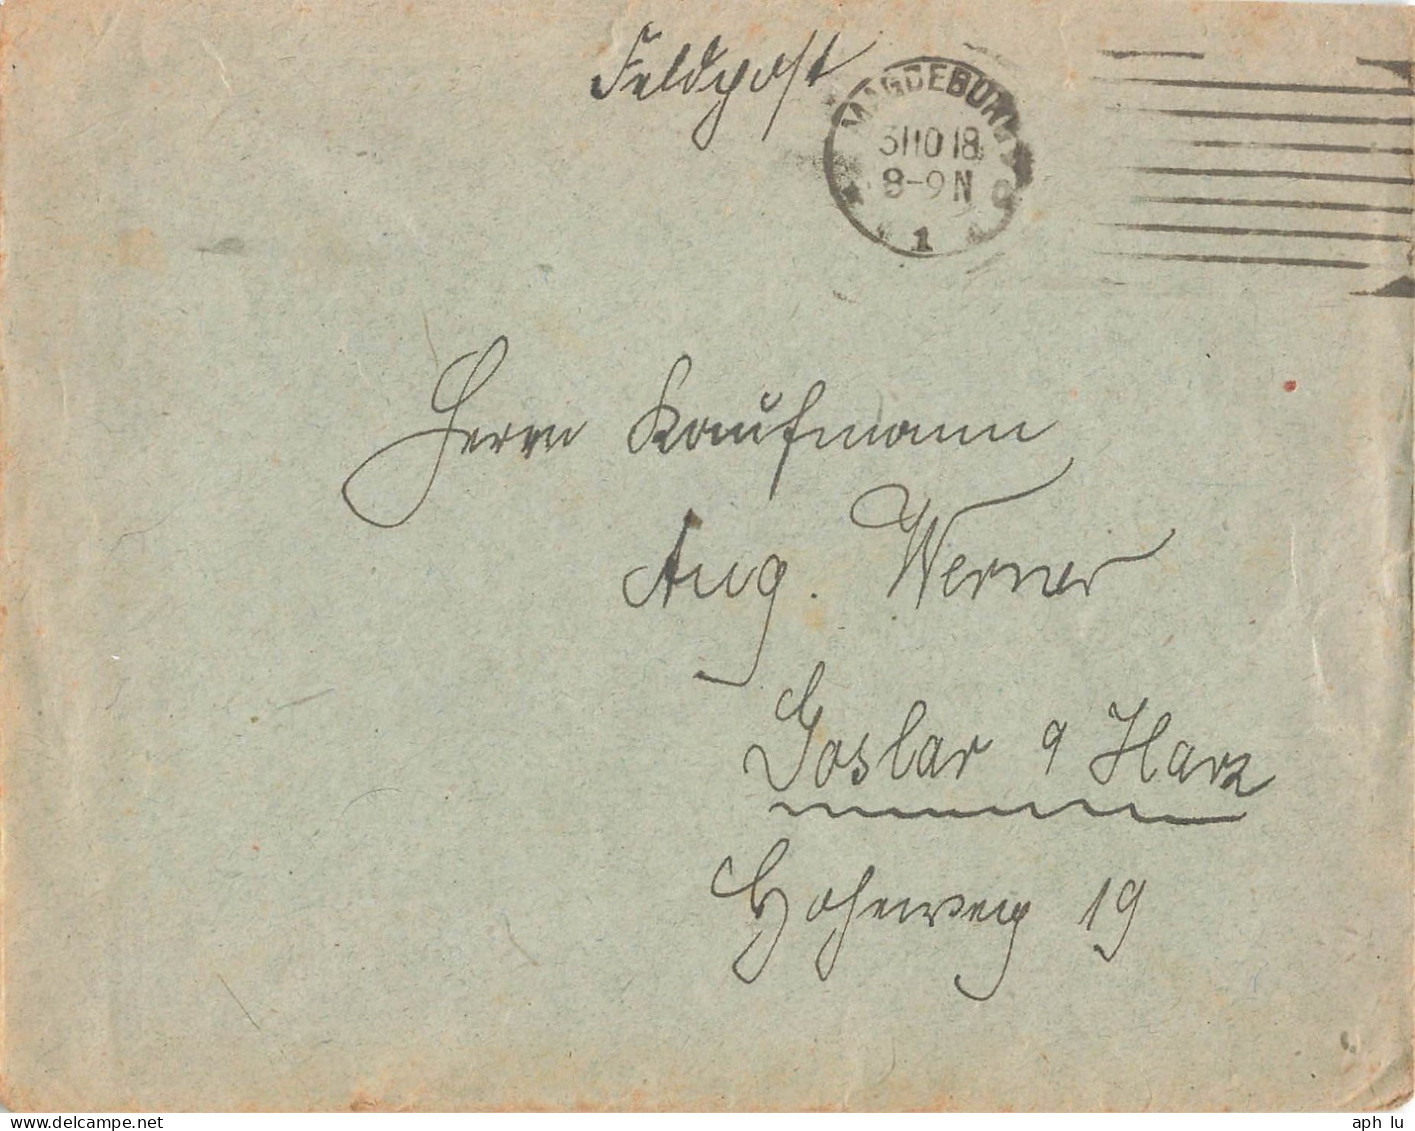 Feldpost
MAGDEBURG
31 10 18
8-9 N
1
Herrn Kaufmann
Aug. Werner
Goslar a Harz
Hoheweg 19
www.delcampe.net
aph lu